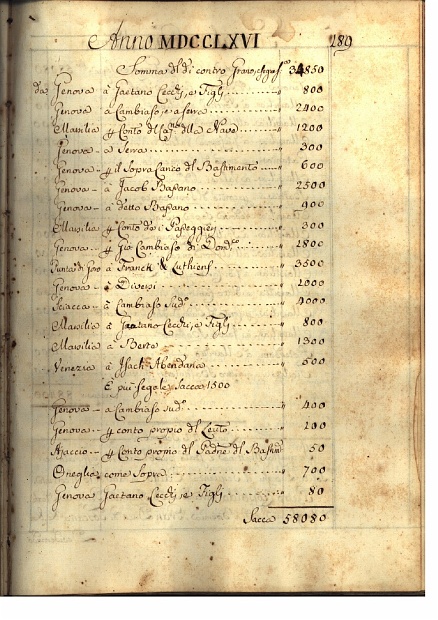 Anno MDCCLXVI 189
Somma dl di contro Grano, 34850
da Genova à Gaetano Cecchj, e Figlj 800
Genova à Cambiaso, e a Serra 2400
Marsilia Conto dl Cap. dlla Nave 1200
Genova - a Serra 300
Genova il Sopra Carico dl Bastimento 600
Genova - à Jacob Bassano 2500
Genova - à detto Bassano 900
Marsilia Conto de i Passeggieri 300
Genova Gio Cambiaso di Dom.co 2800
Punta di Goro à Franck & Luthiens 3500
Genova - à Diversi 2000
Sciacca - à Cambiaso sud.o 4000
Marsilia à Gaetano Cecchj, e Figlj 800
Marsilia à Berte 1300
Venezia à Isach Abendana 500
E più Segale Sacca 1500
Genova - a Cambiaso sud.o 400
Genova conto propio dl Leuto 100
Ajaccio Conto propio dl Padne dl Bastim.to 50
Oneglia come Sopra 700
Genova Gaetano Cecchj, e Figlj 80
Sacca 58080